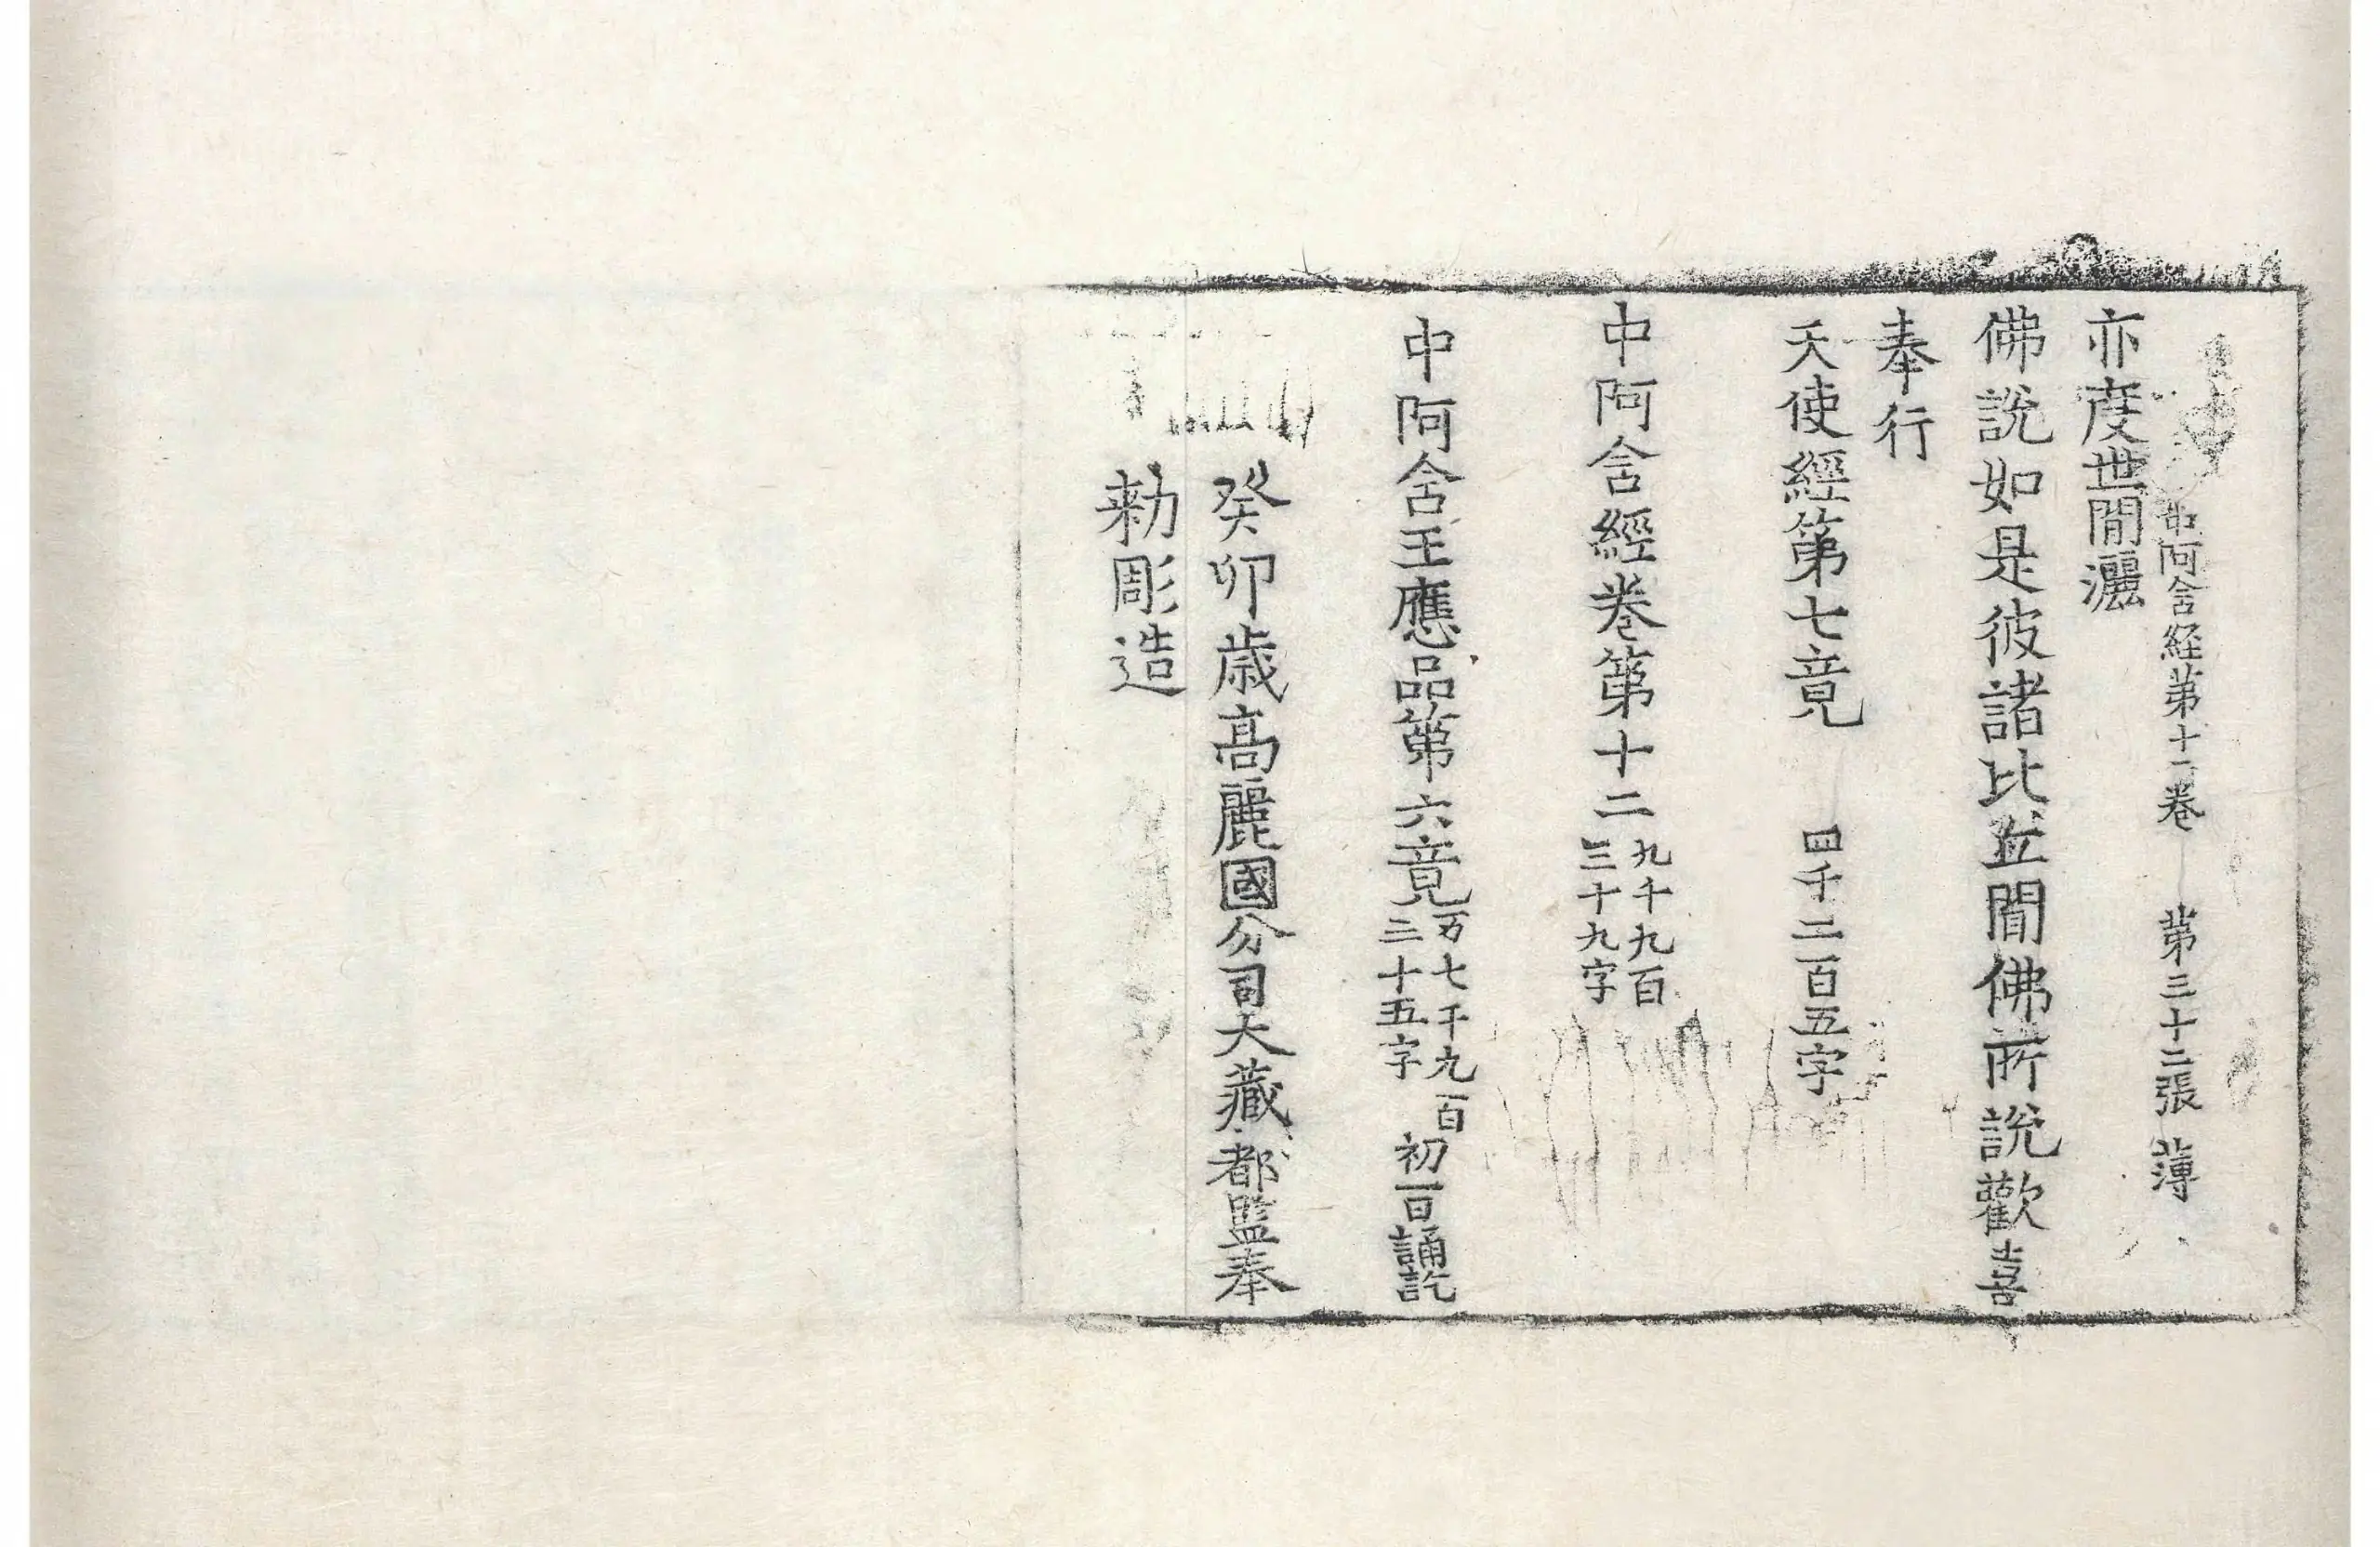 中阿含経第十二卷 第三十二張 薄
亦度世間灋
佛說如是彼諸比丘聞佛所說歡喜
奉行
天使經第七竟 四千二百五字
中阿含經卷第十二 九千九百三十九字
中阿含王應品第六竟 万七千九百三十五字 初一日誦訖
癸卯歳高麗國分司大藏都監奉
勑彫造